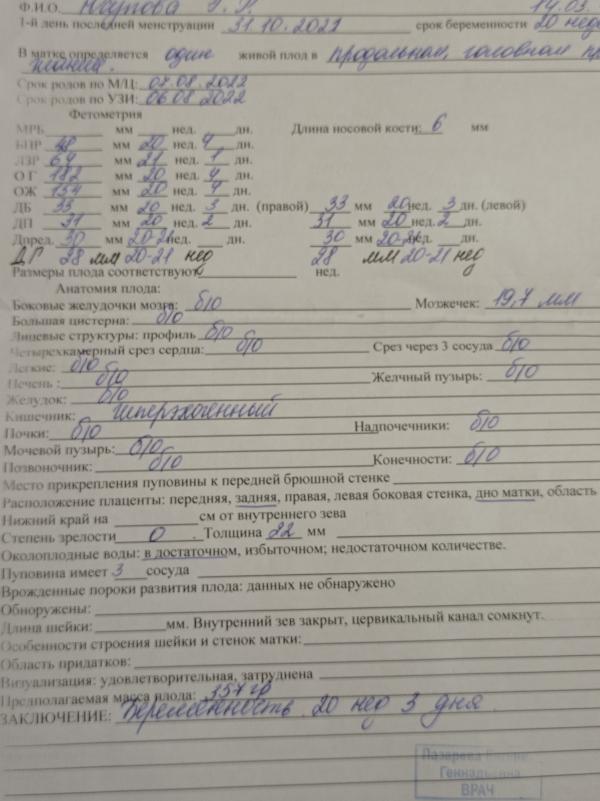 Ф.И.О. 14.03.
1-й день последней менструации 31 10.2022 срок беременности 20 нед
В матке определяется один живой плод в продольном, головном
Срок родов по М/Ц: 07.08.2022
Срок родов по УЗИ: 06 08 2022
Фетометрия
МРБ мм нед. дн. Длина носовой кости: 6 мм
БПР 48 мм 20 нед. 4 дн.
ЛЗР 64 мм 21 нед. 1 дн.
ОГ 182 мм 20 нед. 4 дн.
ОЖ 154 мм 20 нед. 4 дн.
ДБ 33 мм 20 нед. 3 дн. (правой) 33 мм 20 нед. 3 дн. (левой)
ДП 31 мм 20 нед. 2 дн. 31 мм 20 нед. 2 дн.
Дпред. 30 мм 20-21 нед. дн. 30 мм 20-21 нед. дн.
ДГ 28 мм 20-21 нед 28 мм 20-21 нед
Размеры плода соответствуют нед.
Анатомия плода:
Боковые желудочки мозга: б/о Мозжечек: 19,7 мм
Большая цистерна: б/о
Лицевые структуры: профиль б/о
Четырехкамерный срез сердца: б/о Срез через 3 сосуда б/о
Легкие: б/о
Печень : б/о Желчный пузырь: б/о
Желудок: б/о
Кишечник: гиперэхогенный
Почки: б/о Надпочечники: б/о
Мочевой пузырь: б/о
Позвоночник: б/о Конечности: б/о
Место прикрепления пуповины к передней брюшной стенке
Расположение плаценты: передняя, задняя, правая, левая боковая стенка, дно матки, область
Нижний край на см от внутреннего зева
Степень зрелости 0 . Толщина 22 мм
Околоплодные воды: в достаточном, избыточном; недостаточном количестве.
Пуповина имеет 3 сосуда
Врожденные пороки развития плода: данных не обнаружено
Обнаружены:
Длина шейки: мм. Внутренний зев закрыт, цервикальный канал сомкнут.
Особенности строения шейки и стенок матки:
Область придатков:
Визуализация: удовлетворительная, затруднена
Предполагаемая масса плода: 357 гр
ЗАКЛЮЧЕНИЕ: Беременность 20 нед 3 дня.
Лазарева
Геннадьевна
ВРАЧ